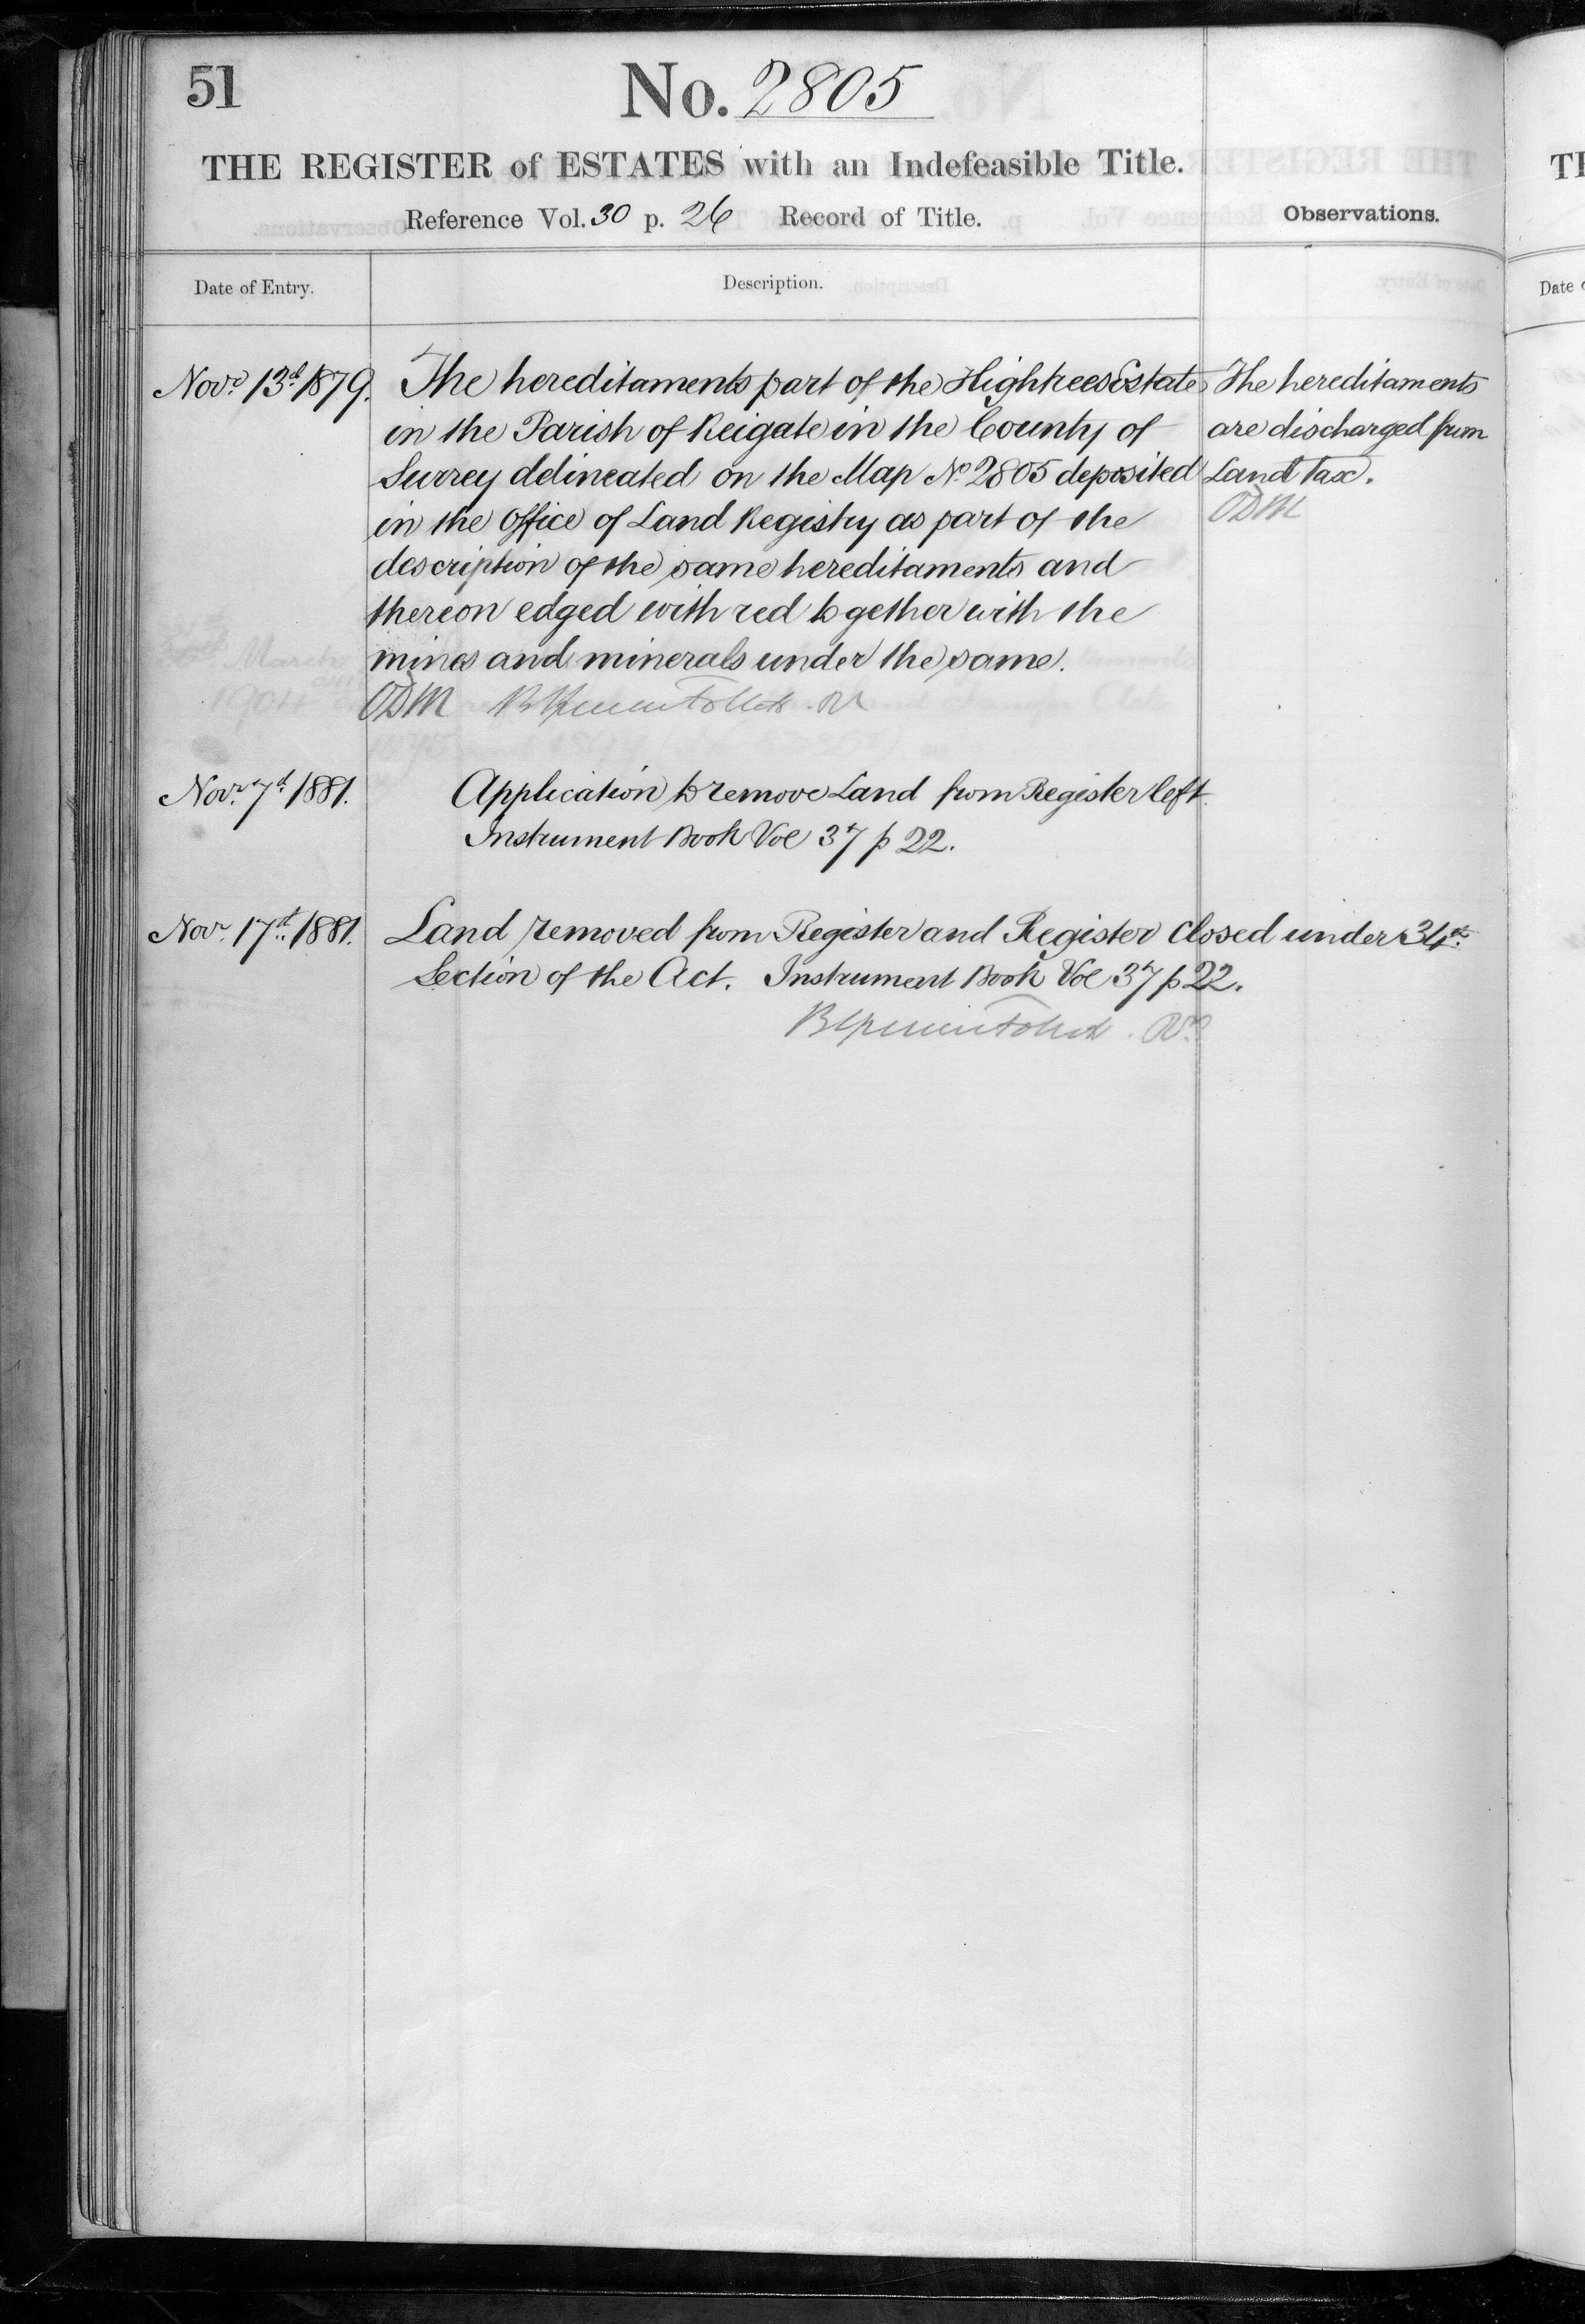 51
No. 2805
THE REGISTER of ESTATES with an Indefeasible Title.
Reference Vol. 30 p. 26 Record of Title.
Observations.
Date of Entry.
Description.
Novr. 13th 1879.
The hereditaments part of the Hightrees Estate
in the Parish of Reigate in the County of
Surrey delineated on the Map No. 2805 deposited
in the Office of Land Registry as part of the
description of the same hereditaments and
thereon edged with red together with the
mines and minerals under the same.
ODM
The hereditaments
are discharged from
Land Tax.
ODM
Novr. 7th 1881.
Application to remove Land from Register left.
Instrument Book Vol 37 p 22.
Novr. 17th 1881.
Land removed from Register and Register closed under 34th
Section of the Act. Instrument Book Vol 37 p 22.